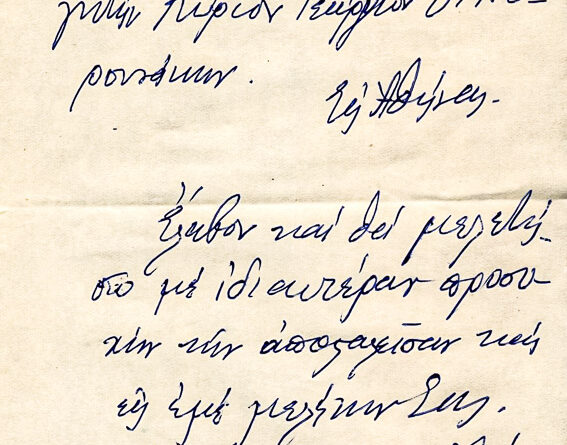 γητὴν Κύριον Γεώργιον
ρουνάκην.
Εἰς Ἀθήνας.
Ἔλαβον καί θά μελετή-
σω μέ ἰδιαιτέραν προσο-
χήν τήν ἀποσταλεῖσαν καί
εἰς ἐμέ μελέτην Σας.